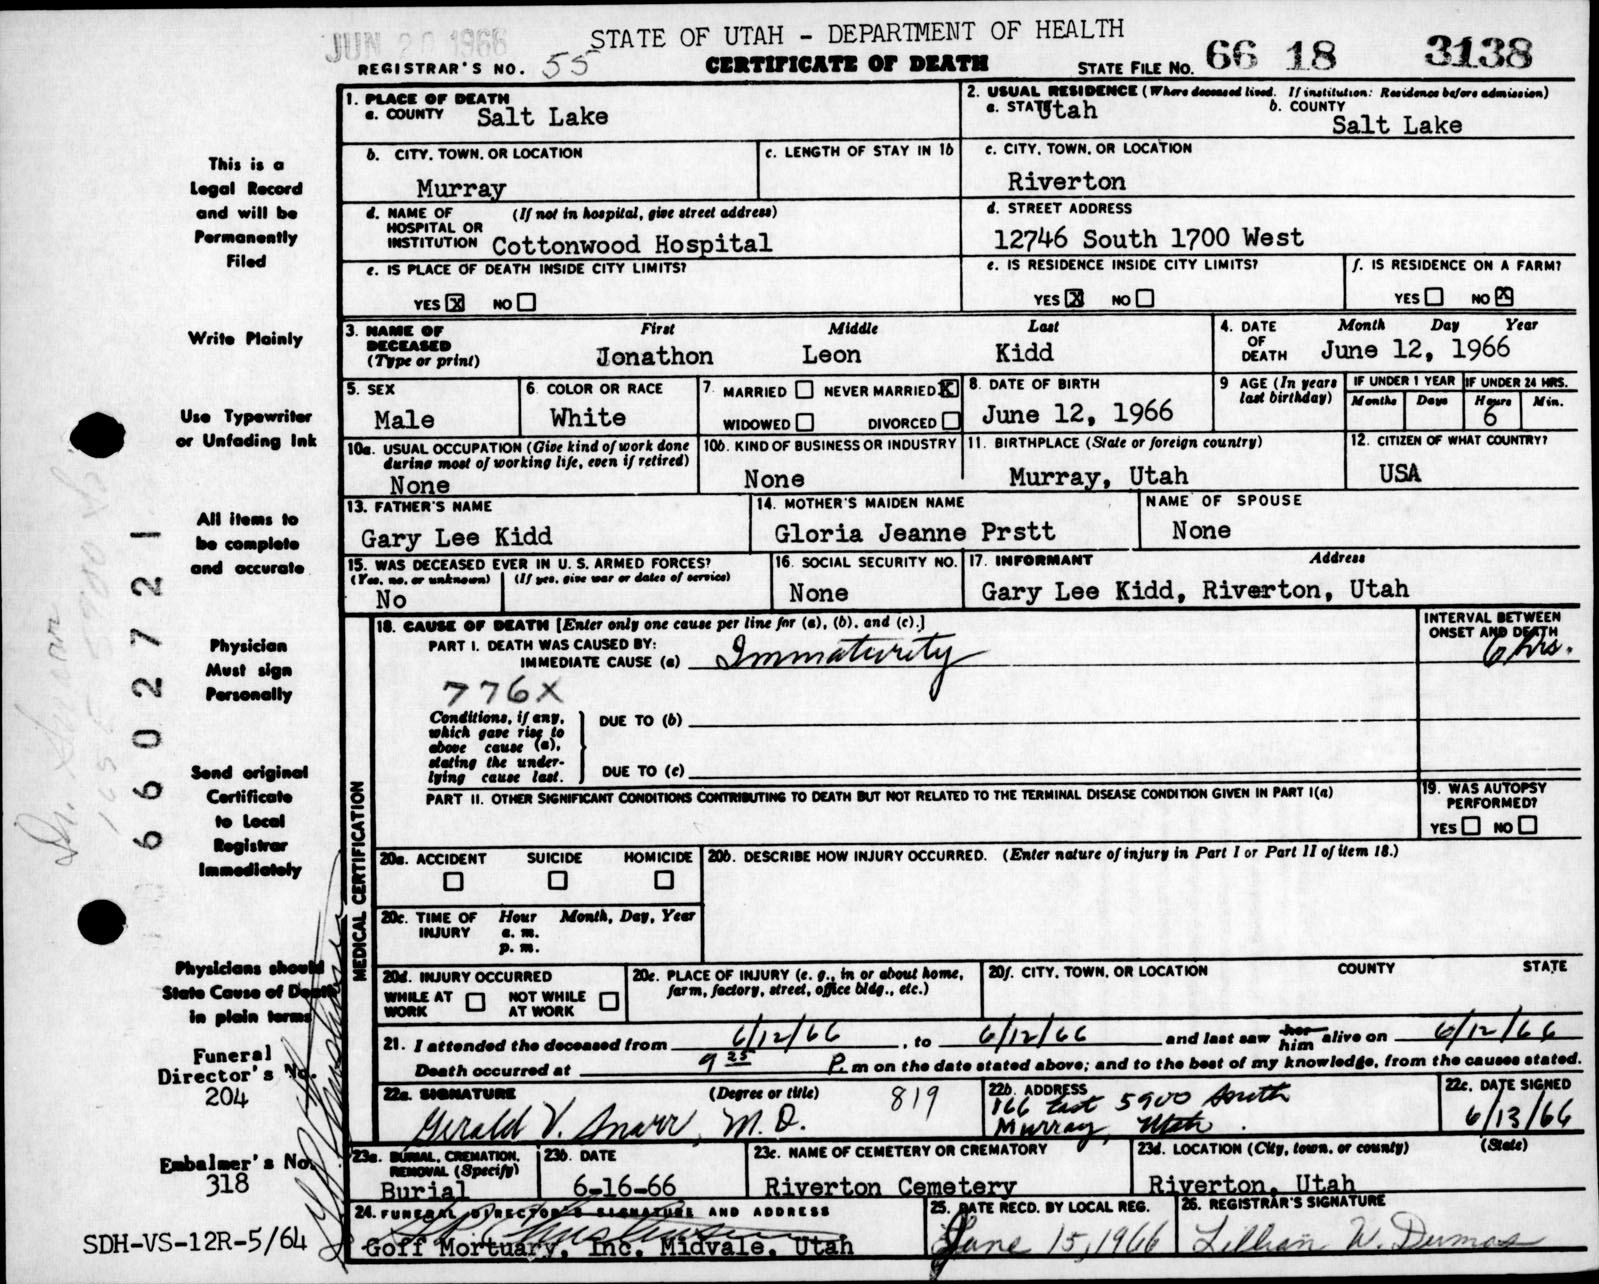 JUN 20 1966
STATE OF UTAH - DEPARTMENT OF HEALTH
REGISTRAR'S NO. 55 CERTIFICATE OF DEATH STATE FILE NO. 66 18 3138
1. PLACE OF DEATH
a. COUNTY Salt Lake
2. USUAL RESIDENCE (Where deceased lived. If institution: Residence before admission)
a. STATE Utah b. COUNTY Salt Lake
b. CITY, TOWN, OR LOCATION Murray
c. LENGTH OF STAY IN 1b
c. CITY, TOWN, OR LOCATION
Riverton
d. NAME OF HOSPITAL OR INSTITUTION (If not in hospital, give street address)
Cottonwood Hospital
d. STREET ADDRESS
12746 South 1700 West
e. IS PLACE OF DEATH INSIDE CITY LIMITS?
YES X NO
e. IS RESIDENCE INSIDE CITY LIMITS?
YES X NO
f. IS RESIDENCE ON A FARM?
YES NO X
3. NAME OF DECEASED (Type or print) First Middle Last
Jonathon Leon Kidd
4. DATE OF DEATH Month Day Year
June 12, 1966
5. SEX
Male
6. COLOR OR RACE
White
7. MARRIED NEVER MARRIED X
WIDOWED DIVORCED
8. DATE OF BIRTH
June 12, 1966
9 AGE (In years last birthday)
IF UNDER 1 YEAR
Months Days
IF UNDER 24 HRS.
Hours Min.
6
10a. USUAL OCCUPATION (Give kind of work done during most of working life, even if retired)
None
10b. KIND OF BUSINESS OR INDUSTRY
None
11. BIRTHPLACE (State or foreign country)
Murray, Utah
12. CITIZEN OF WHAT COUNTRY?
USA
13. FATHER'S NAME
Gary Lee Kidd
14. MOTHER'S MAIDEN NAME
Gloria Jeanne Prstt
NAME OF SPOUSE
None
15. WAS DECEASED EVER IN U. S. ARMED FORCES?
(Yes, no, or unknown) (If yes, give war or dates of service)
No
16. SOCIAL SECURITY NO.
None
17. INFORMANT Address
Gary Lee Kidd, Riverton, Utah
18. CAUSE OF DEATH [Enter only one cause per line for (a), (b), and (c).]
INTERVAL BETWEEN ONSET AND DEATH
PART I. DEATH WAS CAUSED BY:
IMMEDIATE CAUSE (a) Immaturity 6 hrs.
776X
Conditions, if any, which gave rise to above cause (a), stating the underlying cause last.
DUE TO (b)
DUE TO (c)
PART II. OTHER SIGNIFICANT CONDITIONS CONTRIBUTING TO DEATH BUT NOT RELATED TO THE TERMINAL DISEASE CONDITION GIVEN IN PART I(a)
19. WAS AUTOPSY PERFORMED?
YES NO
20a. ACCIDENT SUICIDE HOMICIDE
20b. DESCRIBE HOW INJURY OCCURRED. (Enter nature of injury in Part I or Part II of item 18.)
20c. TIME OF INJURY Hour Month, Day, Year
a. m.
p. m.
20d. INJURY OCCURRED
WHILE AT WORK NOT WHILE AT WORK
20e. PLACE OF INJURY (e. g., in or about home, farm, factory, street, office bldg., etc.)
20f. CITY, TOWN, OR LOCATION COUNTY STATE
21. I attended the deceased from 6/12/66, to 6/12/66 and last saw her him alive on 6/12/66
Death occurred at 9 25 P. m on the date stated above; and to the best of my knowledge, from the causes stated.
22a. SIGNATURE (Degree or title) 819
Gerald V. Snarr, M.D.
22b. ADDRESS
166 East 5900 South
Murray, Utah.
22c. DATE SIGNED
6/13/66
23a. BURIAL, CREMATION, REMOVAL (Specify)
Burial
23b. DATE
6-16-66
23c. NAME OF CEMETERY OR CREMATORY
Riverton Cemetery
23d. LOCATION (City, town, or county) (State)
Riverton, Utah
24. FUNERAL DIRECTOR'S SIGNATURE AND ADDRESS
Goff Mortuary, Inc, Midvale, Utah
25. DATE RECD. BY LOCAL REG.
June 15, 1966
26. REGISTRAR'S SIGNATURE
Lillian W. Dumas
MEDICAL CERTIFICATION
This is a
Legal Record
and will be
Permanently
Filed
Write Plainly
Use Typewriter
or Unfading Ink
All items to
be complete
and accurate
Physician
Must sign
Personally
Send original
Certificate
to Local
Registrar
Immediately
Physicians should
State Cause of Death
in plain terms
Funeral
Director's No.
204
Embalmer's No.
318
SDH-VS-12R-5/64
6602721
Dr. Snarr